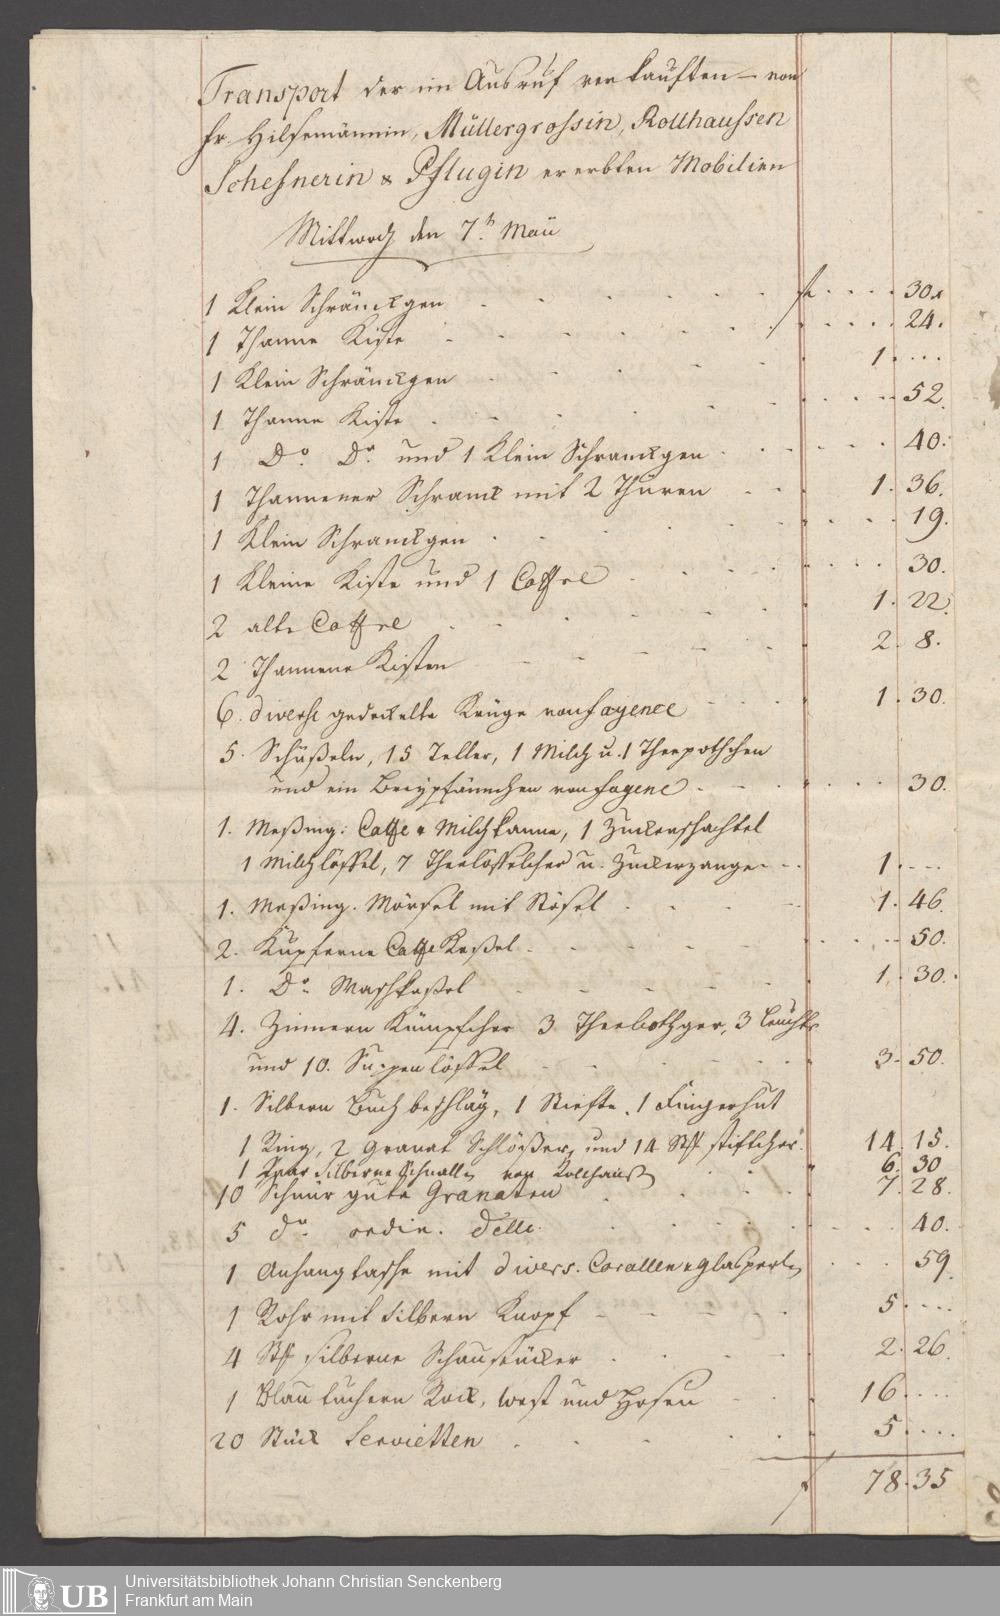 Transport der im Ausruf verkauften – von
Fr. Hilsemännin, Müllergrossin, Rollhaussen
Schesnerin & Pflugin ererbten Mobilien
Mittwoch den 7.t Maii
1 Klein Schränckgen f 30x
1 Thanne Kiste 24.
1 Klein Schränckgen 1.
1 Thanne Kiste 52.
1 Do. Do. und 1 Klein Schranckgen 40.
1 Thannener Schranck mit 2 Thüren 1. 36.
1 Klein Schranckgen 19.
1 Kleine Kiste und 1 Coffre 30.
2 alte Coffre 1. 22.
2 Thannene Kisten 2. 8.
6. diverse gedeckelte Krüge von fayence 1. 30.
5. Schüßeln, 15 Teller, 1 Milch u. 1 Theepothchen
und ein Breypfännchen von fayenc 30.
1. Meßing: Caffe & Milchkanne, 1 Zuckerschachtel
1 Milchlöffel, 7 Theelöffelcher u. Zuckerzange 1.
1. Meßing. Mörsel mit Stösel 1. 46.
2. Kupferne Caffe Keßel 50.
1. Do. Waschkeßel 1. 30.
4. Zinnern Kümpfcher 3 Theebothger, 3 leuchtr
und 10. Suppenlöffel 3. 50.
1. Silbern Buch beschläg, 1 Stiefte, 1 Fingerhut
1 Ring, 2 Granat Schlößer, und 14 Stk stiftcher 14. 15.
1 Paar Silberne Schnallen von Rollhauß 6. 30
10 Schnür gute Granaten 7. 28.
5 do. ordin. Delle 40.
1 Anhangtasche mit divers. Corallen & glasperlen 59.
1 Rohr mit silbern Knopf 5.
4 Stk silberne Schaustücker 2. 26.
1 Blau tuchern Rock, west und Hosen 16.
20 Stück Servietten 5.
f 78. 35
UB
Universitätsbibliothek Johann Christian Senckenberg
Frankfurt am Main